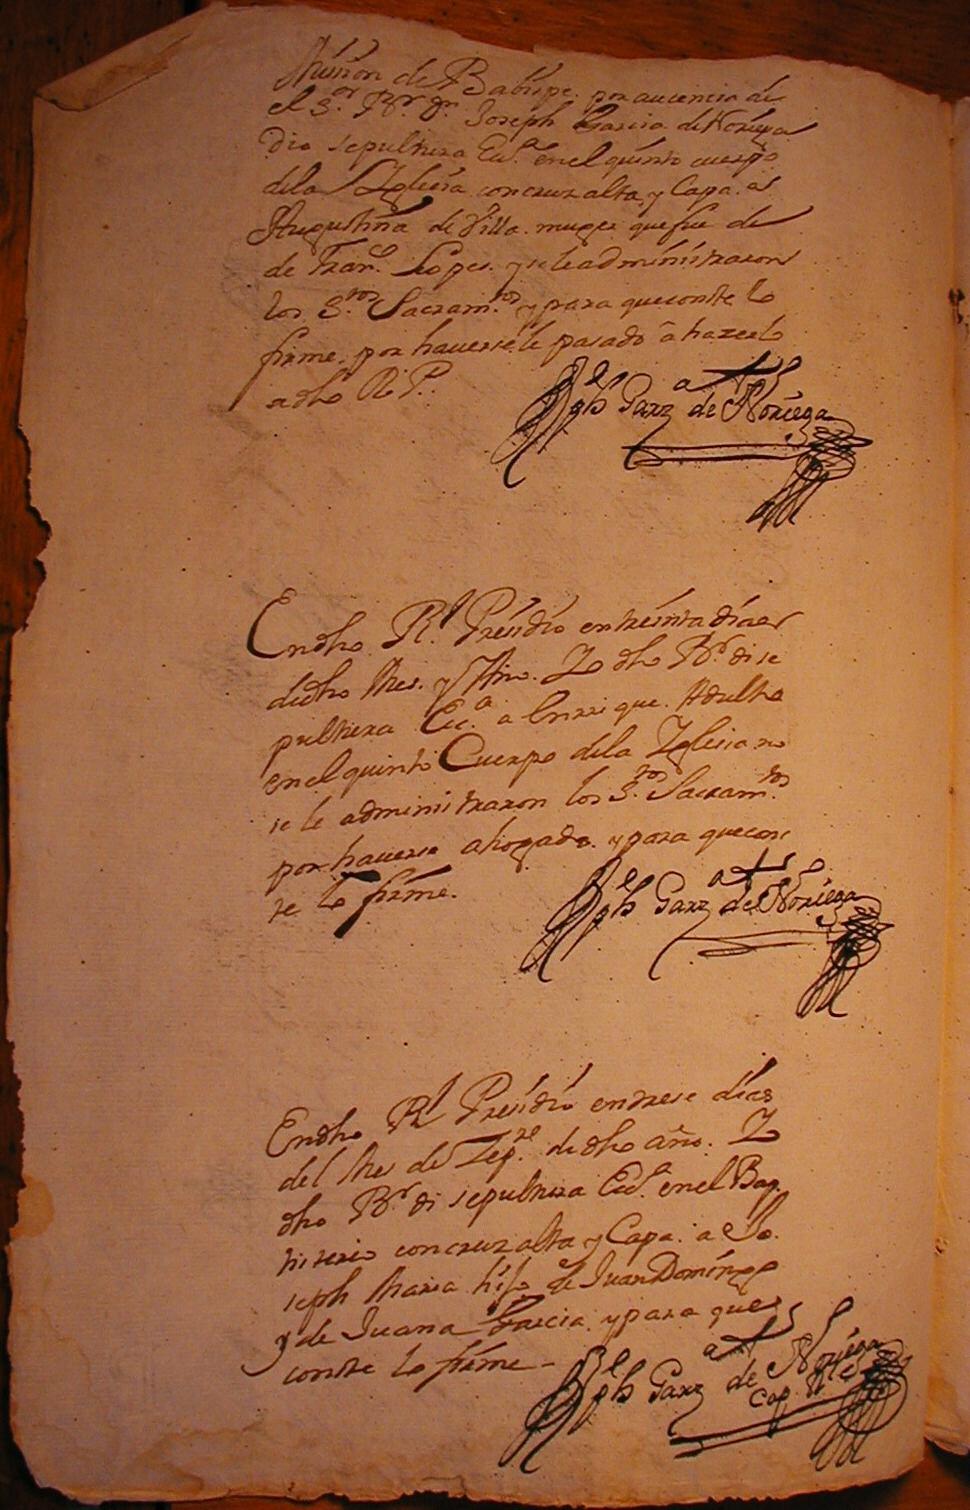 Mission de Babispe. por aucencia de
el S.or Br. Dn Joseph Garcia de Noriega
dio sepultura Ecc.a en el quinto cuerpo
dela Iglesia con cruz alta, y Capa. a
Augustina de Villa. muger que fue de
de Fran.co Lopes. y se le administraron
los S.tos Sacram.tos y para que conste lo
firme. por haverse le pasado â hazerlo
a dho R. P.
Jph Garz.a de Noriega
En dho R.l Presidio en treinta dias
de dho Mes. y Año. Yo dho Br. di se
pultura Ecc.a a Enrrique Adulto
en el quinto Cuerpo dela Iglesia no
se le administraron los S.tos Sacram.tos
por haverse ahogado. y para que cons
te lo firme.
Jph Garz.a de Noriega
En dho R.l Presidio en trese dias
del Mes de Sep.re de dho año. Yo
dho Br. di sepultura Ecc.a en el Bap
tisterio con cruz alta y Capa. a Jo
seph Maria hijo de Juan Doming
y de Juana Garcia. y para que
conste lo firme
Jph Garz.a de Noriega
Cap.